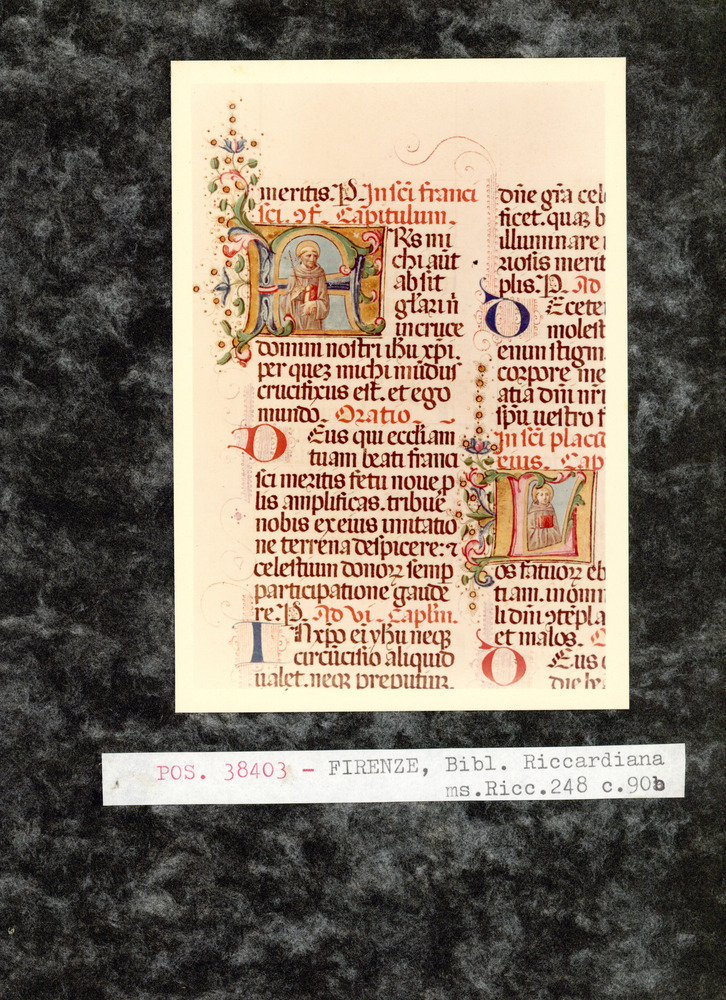 meritis. P. In sci franci
sci. ɔf. Capitulum.
ARs mi
chi aūt
absit
gl'ari n̄
in cruce
domini nostri ihu xpi.
per quez michi mūdus
crucifixus est. et ego
mundo. Oratio
DEus qui eccliam
tuam beati franci
sci meritis fetu noue p
lis amplificas. tribue
nobis ex eius imitatio
ne terrena despicere: ⁊
celestium donoꝝ semp
participatione gaude
re. P. Ad vi. Caplm.
IN xpo ei yhu neqꝫ
circūcisio aliquid
ualet. neqꝫ preputiuꝫ.
dn̄e gr̄a cel
ficet. quaꝫ b
illuminare
riosis merit
plis. P. Ad
DE cete
molest
enim stigm
corpore me
atia dn̄i nr̄i
sp̄u uestro f
In sci placi
eius. Cap
VOs fatuoꝝ eb
tiam. in omni
li dn̄i ɔtēpla
et malos. O
DEus
die be
POS. 38403 - FIRENZE, Bibl. Riccardiana
ms.Ricc.248 c.90b